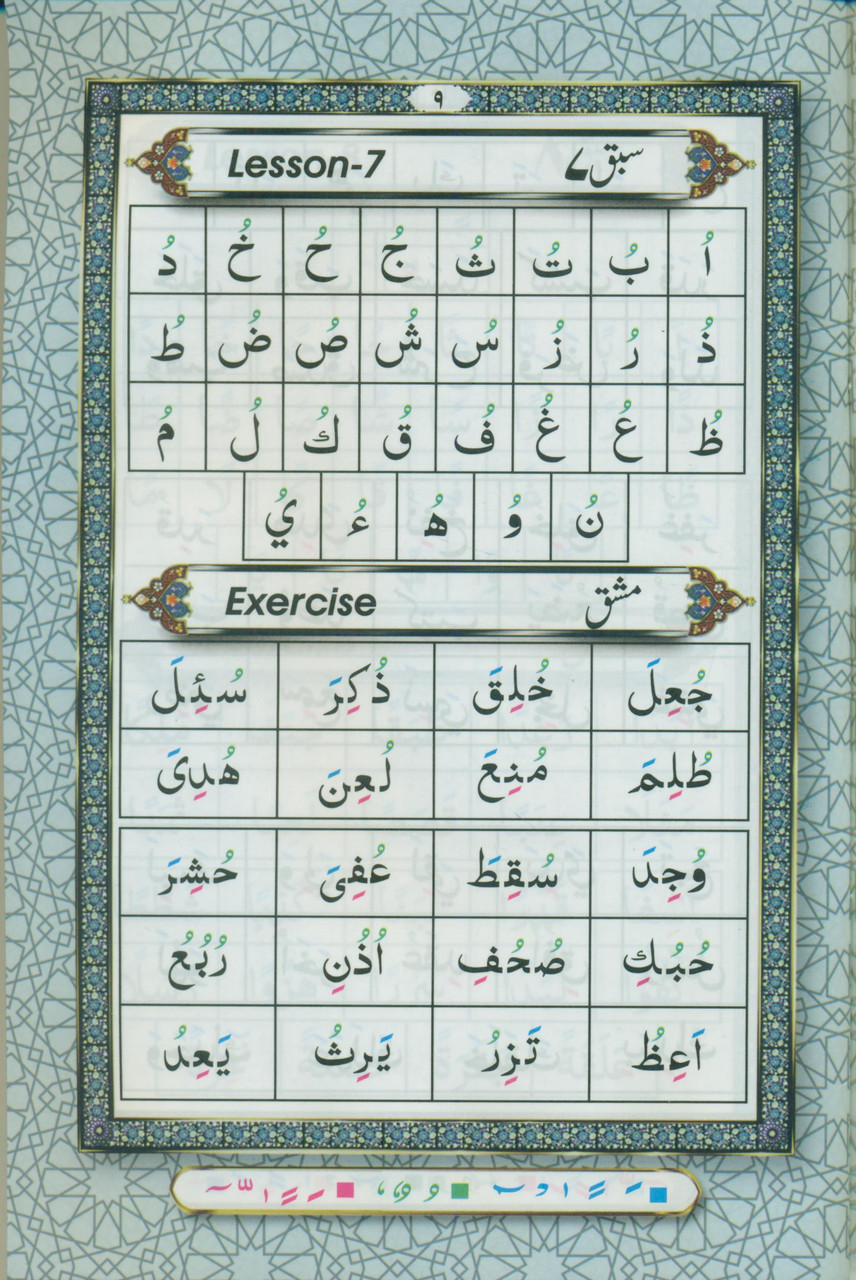 ٩
Lesson-7 سبق ۷
اُ بُ تُ ثُ جُ حُ خُ دُ
ذُ رُ زُ سُ شُ صُ ضُ طُ
ظُ عُ غُ فُ قُ كُ لُ مُ
نُ وُ هُ ءُ يُ
Exercise مشق
جُعِلَ خُلِقَ ذُكِرَ سُئِلَ
ظُلِمَ مُنِعَ لُعِنَ هُدِیَ
وُجِدَ سُقِطَ عُفِیَ حُشِرَ
حُبُكِ صُحُفِ اُذُنِ رُبُعُ
اَعِظُ تَزِرُ يَرِثُ يَعِدُ